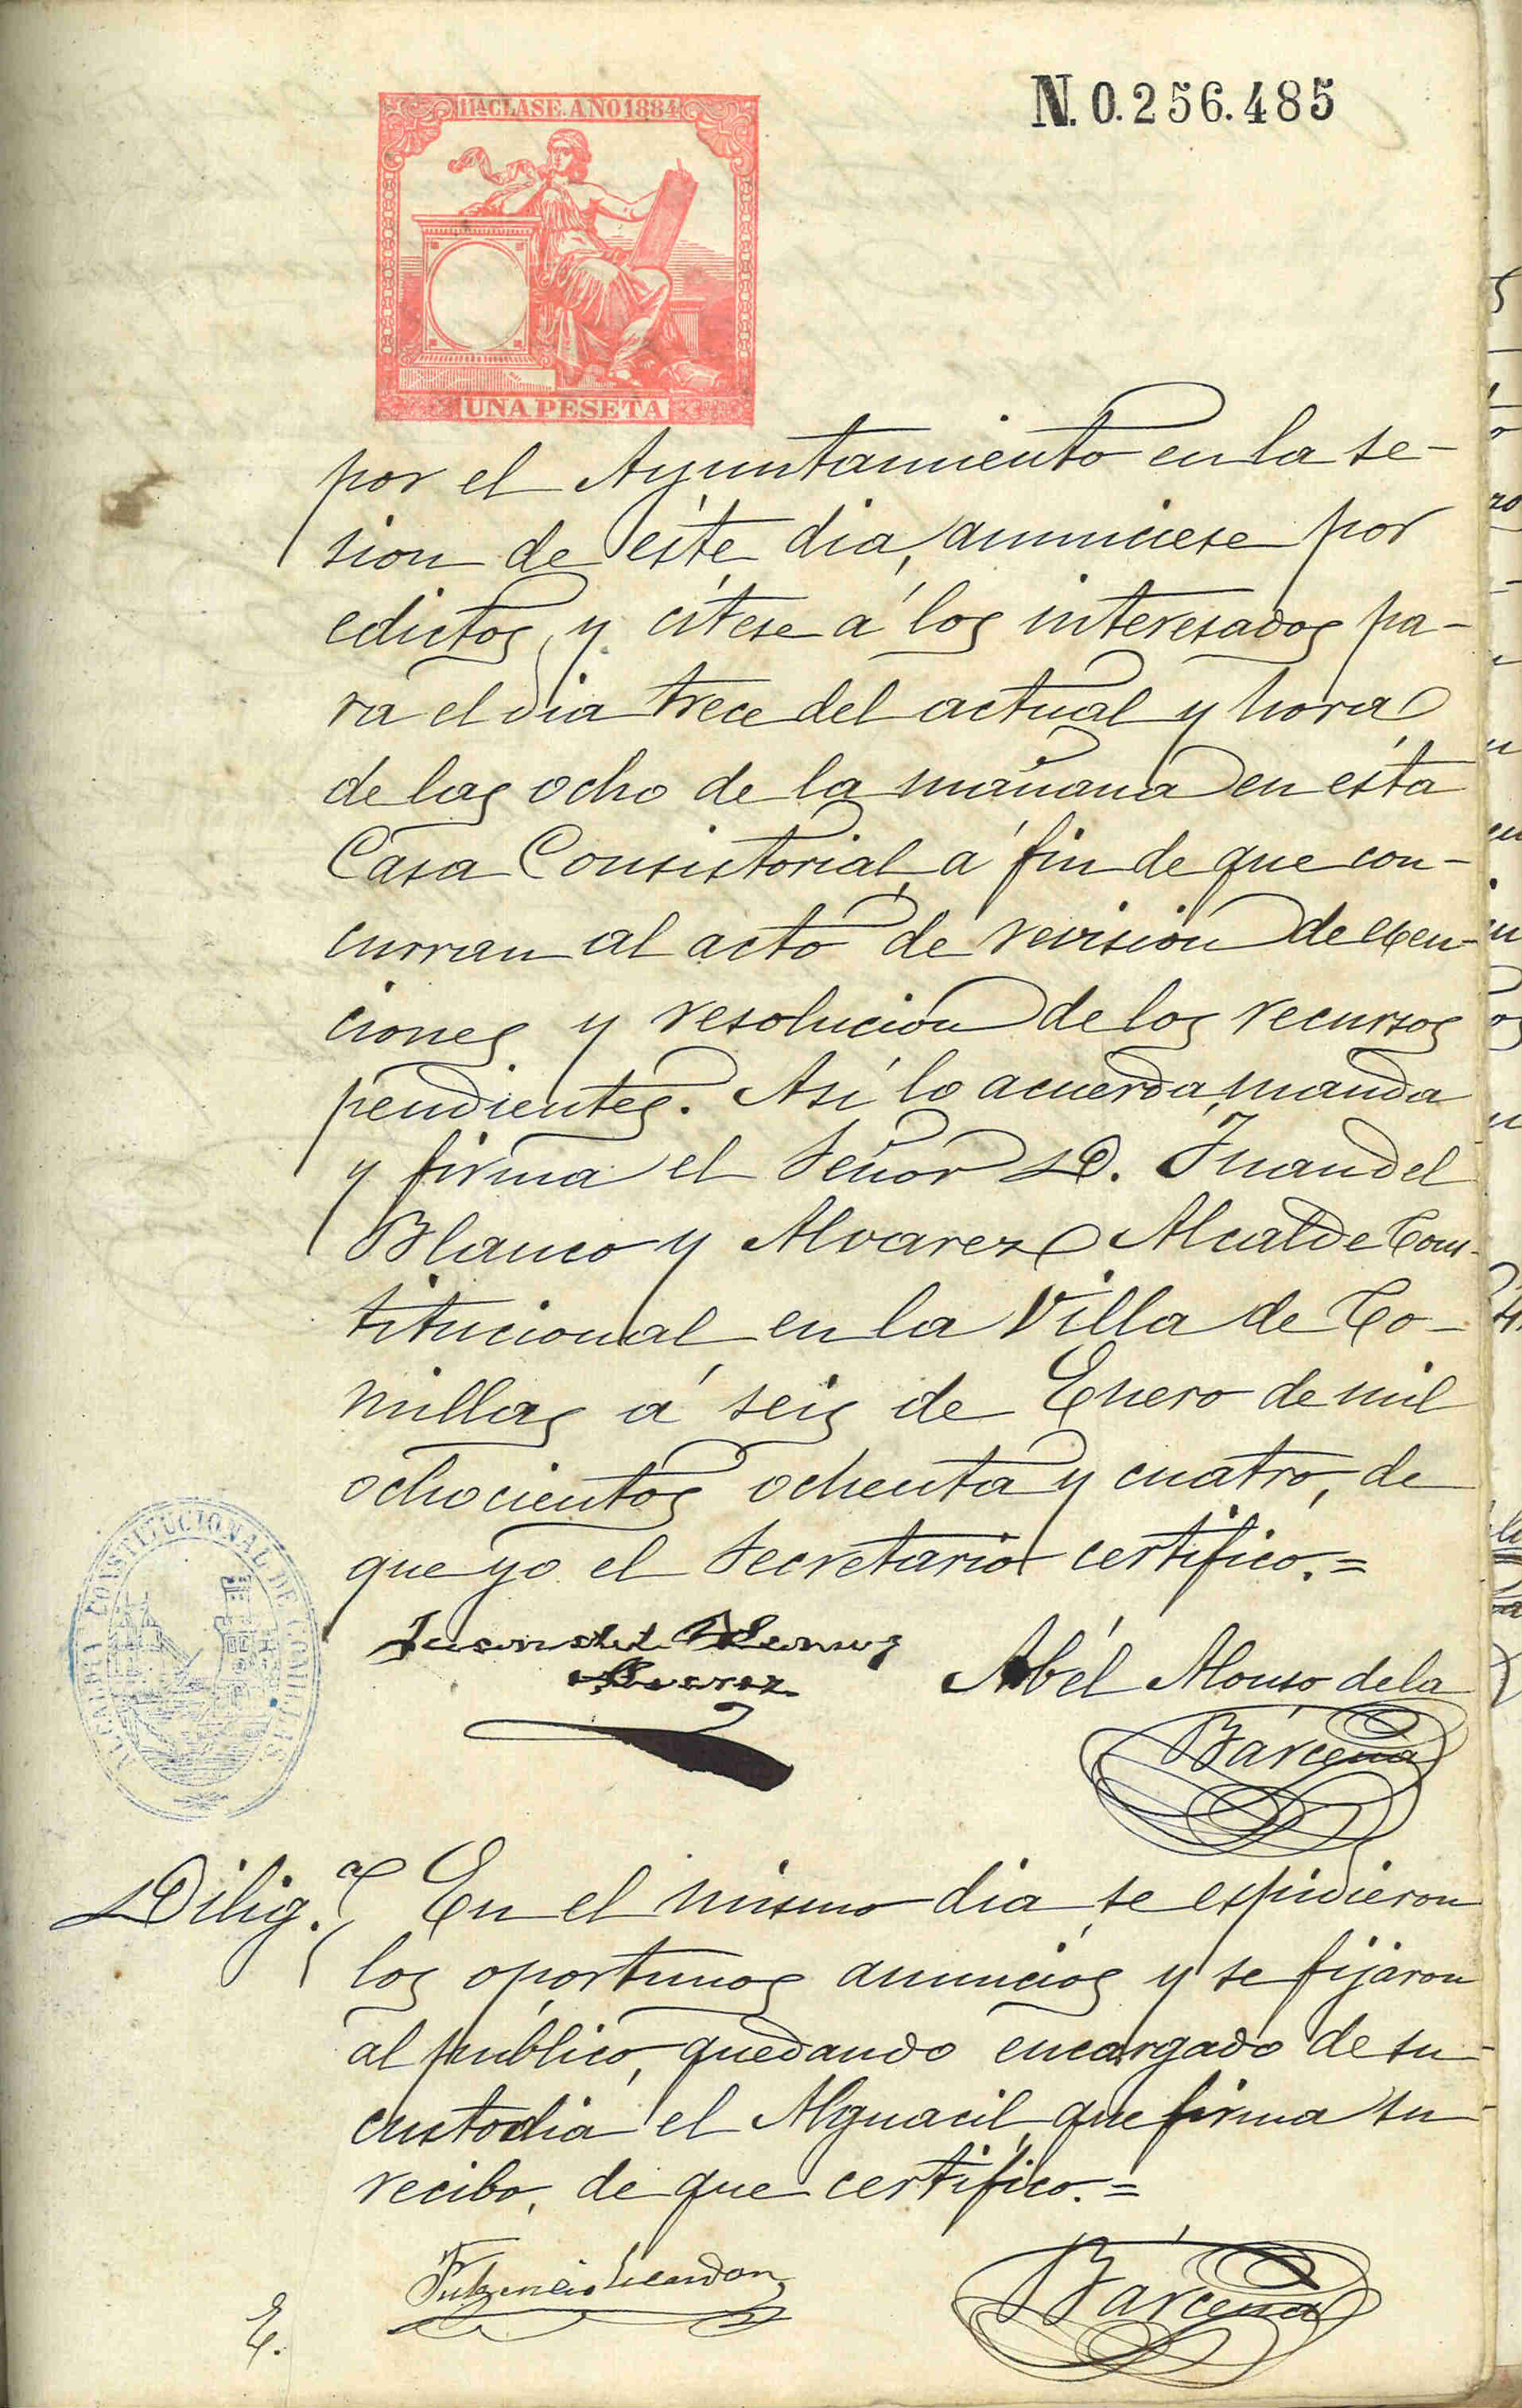 N. 0.256.485
11ª CLASE. AÑO 1884
UNA PESETA
por el Ayuntamiento en la se-
sion de éste dia, anunciese por
edictos, y cítese á los interesados pa-
ra el dia trece del actual y hora
de las ocho de la mañana en ésta
Casa Consistorial, á fin de que con-
curran al acto de revision de exen-
ciones y resolucion de los recursos
pendientes. Así lo acuerda, manda
y firma el Señor D. Juan del
Blanco y Alvarez Alcalde Cons-
titucional en la Villa de Co-
millas á seis de Enero de mil
ochocientos ochenta y cuatro, de
que yo el Secretario certifico.=
ALCALDIA CONSTITUCIONAL DE COMILLAS
Juan del Blanco
Alvarez
Abél Alonso de la
Bárcena
Dilig.ª En el mismo dia se espidieron
los oportunos anuncios y se fijaron
al público, quedando encargado de su
custodia el Alguacil que firma su
recibo, de que certifico.=
Fulgencio
Bárcena
E.